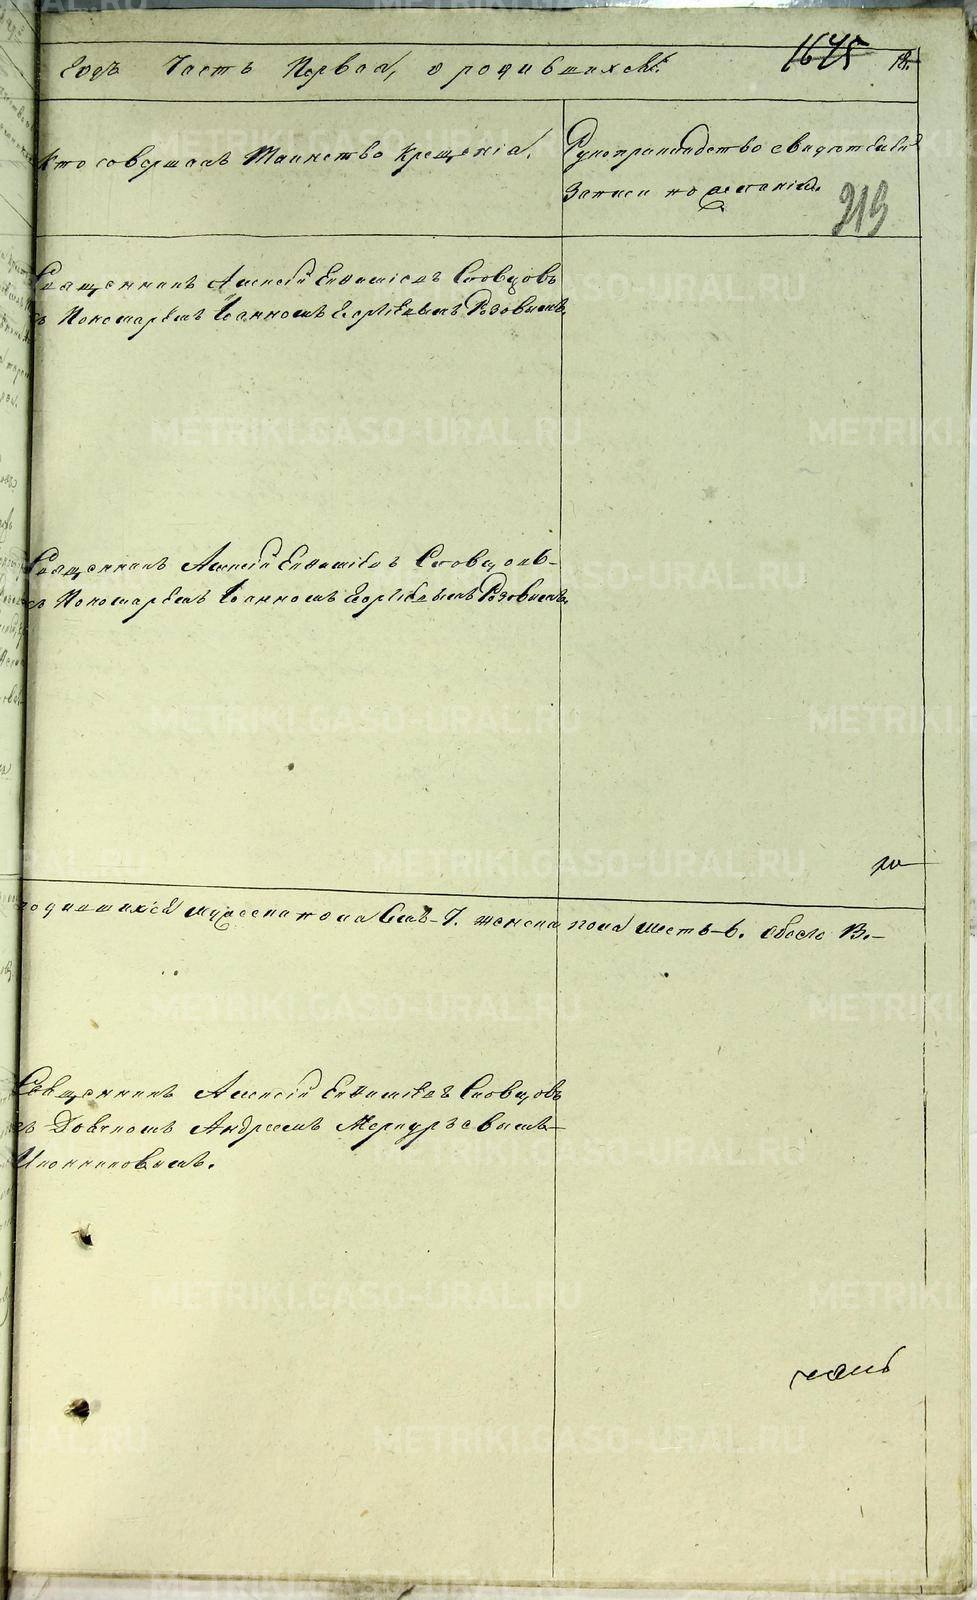 годъ Часть Первая, о родившихся.
1645
18.
Кто совершалъ Таинство Крещенія.
Рукоприкладство свидѣтелей
записи по желанію.
219
Священникъ Алексій Евѳиміевъ Словцовъ
съ Пономаремъ Іоанномъ Георгіевымъ Розовымъ.
Священникъ Алексій Евѳиміевъ Словцовъ
съ Пономаремъ Іоанномъ Георгіевымъ Розовымъ.
родившихся мужеска пола Семь-7. женска пола шесть-6. обоего 13.
Священникъ Алексій Евѳиміевъ Словцовъ
съ Дьячкомъ Андреемъ Меркурьевымъ
Иконниковымъ.
METRIKI.GASO-URAL.RU